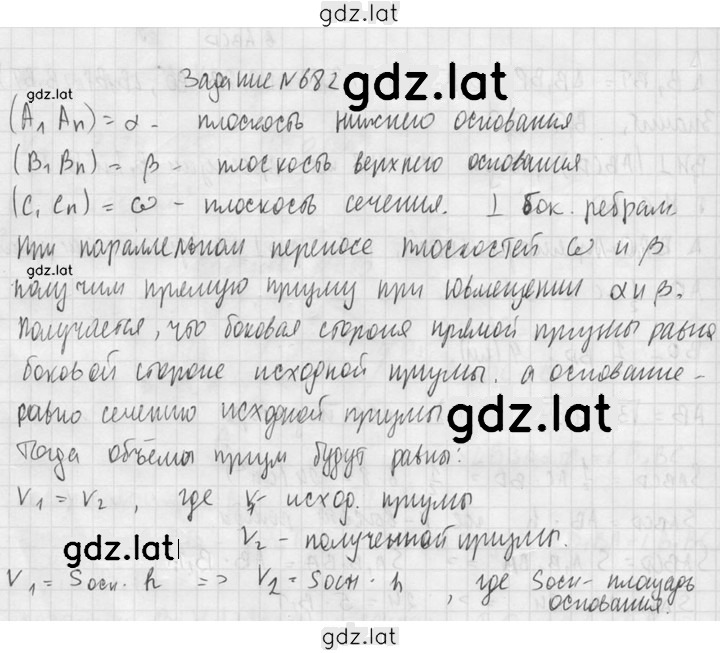 gdz.lat
Задание №682 gdz.lat
gdz.lat
(A₁ Aₙ) = α - плоскость нижнего основания
(B₁ Bₙ) = β - плоскость верхнего основания
(C₁ Cₙ) = ω - плоскость сечения. ⊥ бок. ребрам
При параллельном переносе плоскостей ω и β
gdz.lat
получим прямую призму при совмещении α и β.
Получается, что боковая сторона прямой призмы равна
боковой стороне исходной призмы. а основание -
равно сечению исходной призмы
gdz.lat
Тогда объёмы призм будут равны:
V₁ = V₂, где V₁- исход. призмы
V₂ - полученной призмы.
gdz.lat
V₁ = Sосн · h => V₂ = Sосн · h, где Sосн - площадь
основания.
gdz.lat